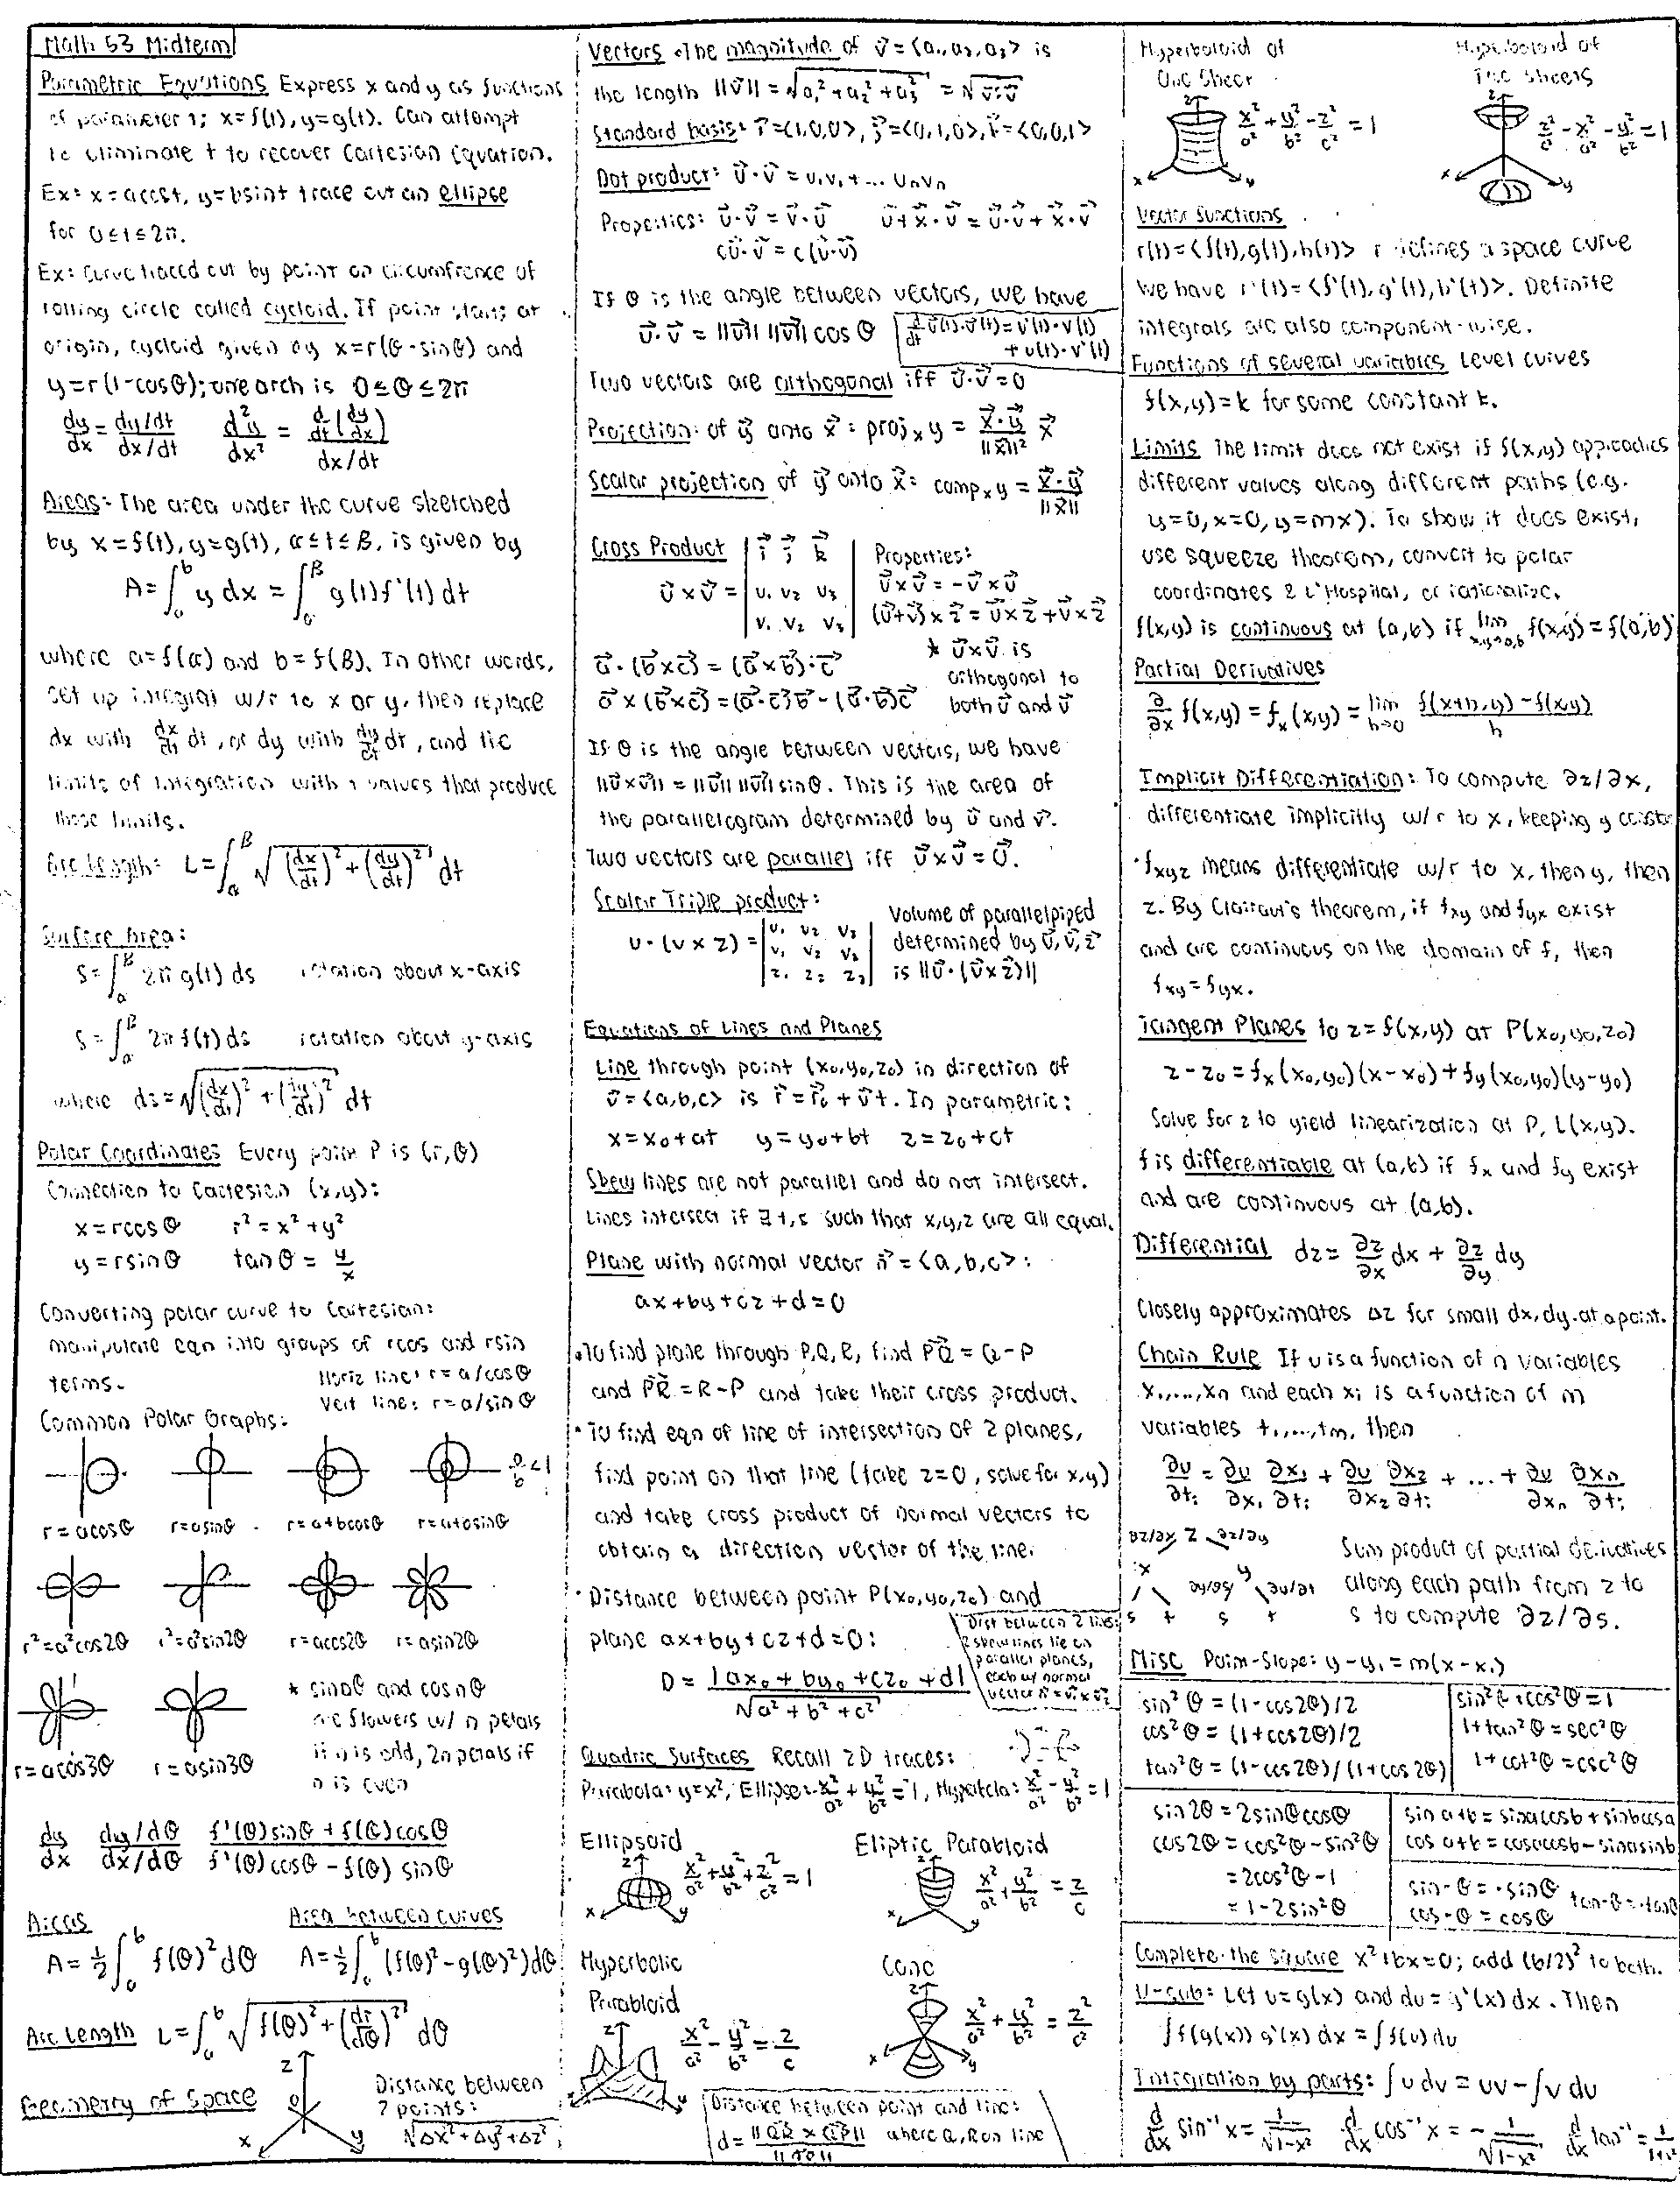 Math 53 Midterm
Parametric Equations Express x and y as functions
of parameter t; x=f(t), y=g(t). Can attempt
to eliminate t to recover Cartesian Equation.
Ex: x=acost, y=bsint trace out an ellipse
for 0≤t≤2π.
Ex: Curve traced out by point on circumfrence of
rolling circle called cycloid. If point starts at
origin, cycloid given by x=r(θ-sinθ) and
y=r(1-cosθ); one arch is 0≤θ≤2π
dy/dx = (dy/dt)/(dx/dt)   d²y/dx² = (d/dt(dy/dx))/(dx/dt)
Areas: The area under the curve sketched
by x=f(t), y=g(t), α≤t≤β, is given by
A=∫_a^b y dx = ∫_α^β g(t)f'(t)dt
where a=f(α) and b=f(β). In other words,
set up integral w/r to x or y, then replace
dx with dx/dt dt, or dy with dy/dt dt, and the
limits of integration with t values that produce
those limits.
Arc Length: L=∫_α^β √((dx/dt)²+(dy/dt)²) dt
Surface Area:
S=∫_α^β 2π g(t) ds   rotation about x-axis
S=∫_α^β 2π f(t) ds   rotation about y-axis
where ds=√((dx/dt)²+(dy/dt)²) dt
Polar Coordinates Every point P is (r,θ)
Connection to Cartesian (x,y):
x=rcosθ   r²=x²+y²
y=rsinθ   tanθ = y/x
Converting polar curve to Cartesian:
manipulate eqn into groups of rcos and rsin
terms.
Horiz line: r=a/cosθ
Vert line: r=a/sinθ
Common Polar Graphs:
a/b<1
r=acosθ   r=asinθ   r=a+bcosθ   r=a+bsinθ
r²=a²cos2θ   r²=a²sin2θ   r=acos2θ   r=asin2θ
* sinnθ and cosnθ
are flowers w/ n petals
if n is odd, 2n petals if
n is even
r=acos3θ   r=asin3θ
dy/dx   (dy/dθ)/(dx/dθ)   (f'(θ)sinθ+f(θ)cosθ)/(f'(θ)cosθ-f(θ)sinθ)
Areas   Area between curves
A=½∫_a^b f(θ)²dθ   A=½∫_a^b (f(θ)²-g(θ)²)dθ
Arc Length L=∫_a^b √(f(θ)²+(dr/dθ)²) dθ
Geometry of Space
z
0
x   y
Distance between
2 points:
√(Δx²+Δy²+Δz²)
Vectors •The magnitude of v⃗=<a₁,a₂,a₃> is
the length ||v⃗||=√(a₁²+a₂²+a₃²) = √(v⃗·v⃗)
Standard basis: i⃗=<1,0,0>, j⃗=<0,1,0>, k⃗=<0,0,1>
Dot product: u⃗·v⃗ = u₁v₁+... uₙvₙ
Properties: u⃗·v⃗ = v⃗·u⃗   u⃗+x⃗·v⃗ = u⃗·v⃗+x⃗·v⃗
cu⃗·v⃗ = c(u⃗·v⃗)
If θ is the angle between vectors, we have
u⃗·v⃗ = ||u⃗|| ||v⃗|| cos θ
d/dt u⃗(t)·v⃗(t) = u'(t)·v(t)
+u(t)·v'(t)
Two vectors are orthogonal iff u⃗·v⃗=0
Projection: of y⃗ onto x⃗: projₓy = (x⃗·y⃗)/||x⃗||² x⃗
Scalar projection of y⃗ onto x⃗: compₓy = (x⃗·y⃗)/||x⃗||
Cross Product
u⃗×v⃗ = |i⃗ j⃗ k⃗|
|u₁ u₂ u₃|
|v₁ v₂ v₃|
Properties:
u⃗×v⃗=-v⃗×u⃗
(u⃗+v⃗)×z⃗=u⃗×z⃗+v⃗×z⃗
* u⃗×v⃗ is
orthogonal to
both u⃗ and v⃗
a⃗·(b⃗×c⃗)=(a⃗×b⃗)·c⃗
a⃗×(b⃗×c⃗)=(a⃗·c⃗)b⃗-(a⃗·b⃗)c⃗
If θ is the angle between vectors, we have
||u⃗×v⃗|| = ||u⃗|| ||v⃗|| sinθ. This is the area of
the parallelogram determined by u⃗ and v⃗.
Two vectors are parallel iff u⃗×v⃗=0⃗.
Scalar Triple product:
u·(v×z)=|u₁ u₂ u₃|
|v₁ v₂ v₃|
|z₁ z₂ z₃|
Volume of parallelpiped
determined by u⃗,v⃗,z⃗
is ||u⃗·(v⃗×z⃗)||
Equations of Lines and Planes
Line through point (x₀,y₀,z₀) in direction of
v⃗=<a,b,c> is r⃗=r⃗₀+v⃗t. In parametric:
x=x₀+at   y=y₀+bt   z=z₀+ct
Skew lines are not parallel and do not intersect.
Lines intersect if ∃ t,s such that x,y,z are all equal.
Plane with normal vector n⃗=<a,b,c>:
ax+by+cz+d=0
•To find plane through P,Q,R, find PQ⃗=Q-P
and PR⃗=R-P and take their cross product.
•To find eqn of line of intersection of 2 planes,
find point on that line (take z=0, solve for x,y)
and take cross product of normal vectors to
obtain a direction vector of the line.
•Distance between point P(x₀,y₀,z₀) and
plane ax+by+cz+d=0:
D = |ax₀+by₀+cz₀+d|/√(a²+b²+c²)
Dist between 2 lines:
2 skew lines lie on
parallel planes,
each w/ normal
vector n⃗=v⃗₁×v⃗₂
Quadric Surfaces Recall 2D traces:
Parabola: y=x², Ellipse: x²/a²+y²/b²=1, Hyperbola: x²/a²-y²/b²=1
Ellipsoid   Eliptic Parabloid
x²/a²+y²/b²+z²/c²=1   x²/a²+y²/b²=z/c
Hyperbolic   Cone
Parabloid
x²/a²-y²/b²=z/c   x²/a²+y²/b²=z²/c²
Distance between point and line:
d=||QR⃗×QP⃗||/||QR⃗|| where Q,R on line
Hyperboloid of   Hyperboloid of
One Sheet   Two Sheets
x²/a²+y²/b²-z²/c²=1   z²/c²-x²/a²-y²/b²=1
Vector Functions
r(t)=<f(t),g(t),h(t)> r defines a space curve
We have r'(t)=<f'(t),g'(t),h'(t)>. Definite
integrals are also component-wise.
Functions of several variables Level curves
f(x,y)=k for some constant k.
Limits The limit does not exist if f(x,y) approaches
different values along different paths (e.g.
y=0, x=0, y=mx). To show it does exist,
use squeeze theorem, convert to polar
coordinates & L'Hospital, or rationalize.
f(x,y) is continuous at (a,b) if lim x,y→a,b f(x,y)=f(a,b)
Partial Derivatives
∂/∂x f(x,y)=fₓ(x,y)=lim h→0 (f(x+h,y)-f(x,y))/h
Implicit Differentiation: To compute ∂z/∂x,
differentiate implicitly w/r to x, keeping y const
•f_xyz means differentiate w/r to x, then y, then
z. By Clairaut's theorem, if f_xy and f_yx exist
and are continuous on the domain of f, then
f_xy=f_yx.
Tangent Planes to z=f(x,y) at P(x₀,y₀,z₀)
z-z₀=fₓ(x₀,y₀)(x-x₀)+f_y(x₀,y₀)(y-y₀)
Solve for z to yield linearization at P, L(x,y).
f is differentiable at (a,b) if fₓ and f_y exist
and are continuous at (a,b).
Differential dz=∂z/∂x dx + ∂z/∂y dy
Closely approximates Δz for small dx,dy.at a point.
Chain Rule If u is a function of n variables
x₁,...,xₙ and each xᵢ is a function of m
variables t₁,...,tₘ, then
∂u/∂tᵢ = ∂u/∂x₁ ∂x₁/∂tᵢ + ∂u/∂x₂ ∂x₂/∂tᵢ + ... + ∂u/∂xₙ ∂xₙ/∂tᵢ
∂z/∂x z ∂z/∂y
x   y
s t   s t
Sum product of partial derivatives
along each path from z to
s to compute ∂z/∂s.
Misc Point-Slope: y-y₁=m(x-x₁)
sin²θ=(1-cos2θ)/2
cos²θ=(1+cos2θ)/2
tan²θ=(1-cos2θ)/(1+cos2θ)
sin²θ+cos²θ=1
1+tan²θ=sec²θ
1+cot²θ=csc²θ
sin2θ=2sinθcosθ
cos2θ=cos²θ-sin²θ
=2cos²θ-1
=1-2sin²θ
sin a+b=sinacosb+sinbcosa
cos a+b=cosacosb-sinasinb
sin-θ=-sinθ   tan-θ=-tanθ
cos-θ=cosθ
Complete the square x²+bx=0; add (b/2)² to both.
U-sub: Let u=g(x) and du=g'(x)dx. Then
∫f(g(x))g'(x)dx=∫f(u)du
Integration by parts: ∫udv=uv-∫vdu
d/dx sin⁻¹x=1/√(1-x²)   d/dx cos⁻¹x=-1/√(1-x²)   d/dx tan⁻¹=1/(1+x²)